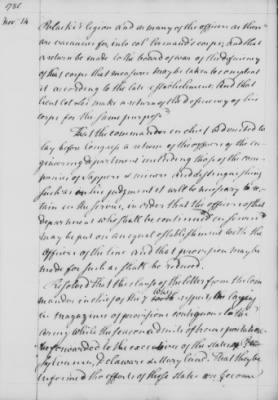 1780
Nov. 14
Pulaski's legion and as many of the officers as there
are vacancies for into col. Armand's corps; And that
a return be made to the board of war of the deficiency
of that corps that measures may be taken to complete
it according to the late establishment. And that
lieut. col. Lee make a return of the deficiency of his
corps for the same purpose
That the commander in chief be directed to
lay before Congress a return of the officers of the en-
gineering department including those of the com-
panies of sappers & miners and distinguishing
such as in his judgment it will be necessary to re-
tain in the service, in order that the officers of that
department who shall be continued in service
may be put on an equal establishment with the
Officers of the line And that provision may be
made for such as shall be reduced.
Resolved That the clause of the letter from the com-
mander in chief of the 7 which respects the laying
in magazines of provisions contiguous to the
army while the season admits of transportation
be forwarded to the executives of the states of Penn-
sylvania, Delaware & Maryland. That they be
informed the efforts of these states are become